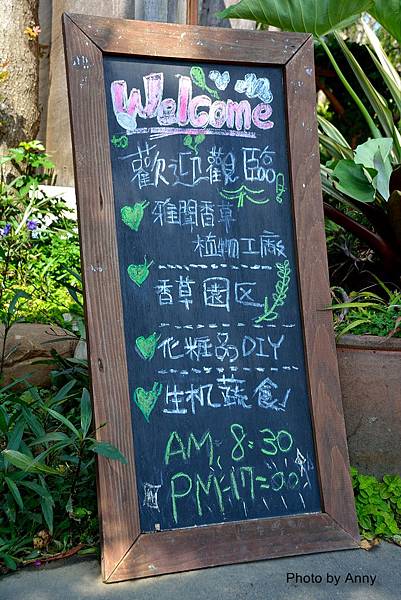 Welcome
歡迎觀臨
雅聞香草
植物工廠
香草園区
化粧品DIY
生机蔬食!
AM. 8:30
PM-17:00
Photo by Anny